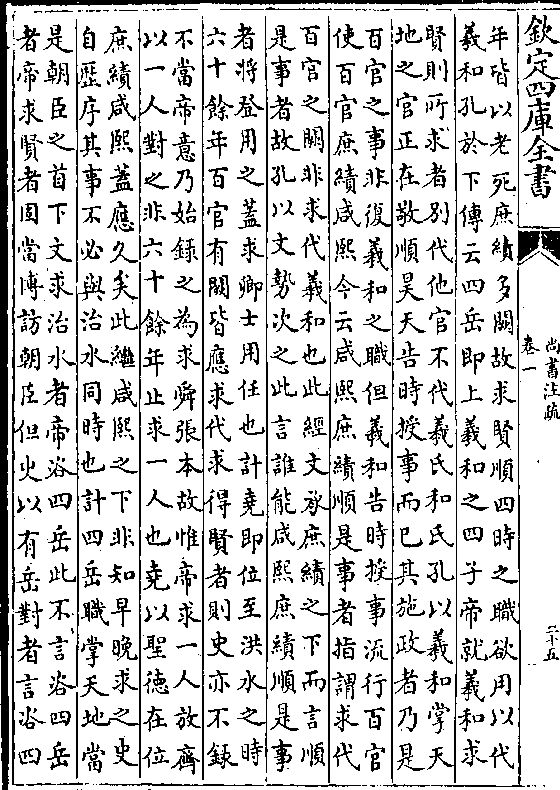 欽定四庫全書
尚書注疏
卷一
二十五
年皆以老死庶績多闕故求賢順四時之職欲用以代
羲和孔於下傳云四岳即上羲和之四子帝就羲和求
賢則所求者別代他官不代羲氏和氏孔以羲和掌天
地之官正在敬順昊天告時授事而已其施政者乃是
百官之事非復羲和之職但羲和告時授事流行百官
使百官庶績咸熙今云咸熙庶績順是事者指謂求代
百官之闕非求代羲和也此經文承庶績之下而言順
是事者故孔以文勢次之此言誰能咸熙庶績順是事
者將登用之蓋求卿士用任也計堯即位至洪水之時
六十餘年百官有闕皆應求代求得賢者則史亦不錄
不當帝意乃始錄之為求舜張本故惟帝求一人放齊
以一人對之非六十餘年止求一人也堯以聖德在位
庶績咸熙蓋應久矣此繼咸熙之下非知早晚求之史
自歷序其事不必與治水同時也計四岳職掌天地當
是朝臣之首下文求治水者帝咨四岳此不言咨四岳
者帝求賢者固當博訪朝臣但史以有岳對者言咨四